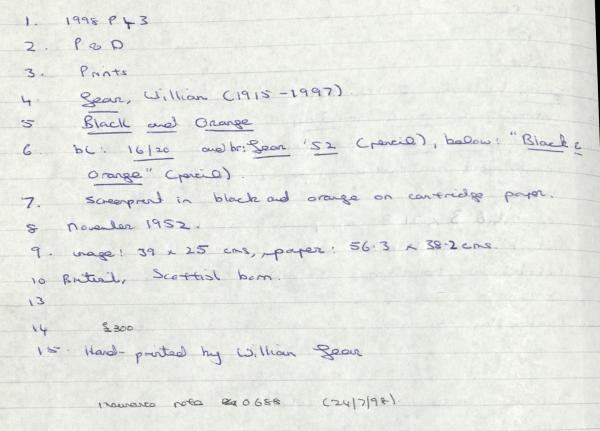 1. 1998 P 43
2. P & D
3. Prints
4 Gear, William (1915-1997)
5 Black and Orange
6 bl: 16/20 and br: Gear '52 (pencil), below: "Black &
Orange" (pencil).
7. Screenprint in black and orange on cartridge paper.
8 November 1952.
9. image: 39 x 25 cms, paper: 56.3 x 38.2 cms.
10 British, Scottish born.
13
14 £300
15. Hand-printed by William Gear
insurance note 0688 (24/7/98).